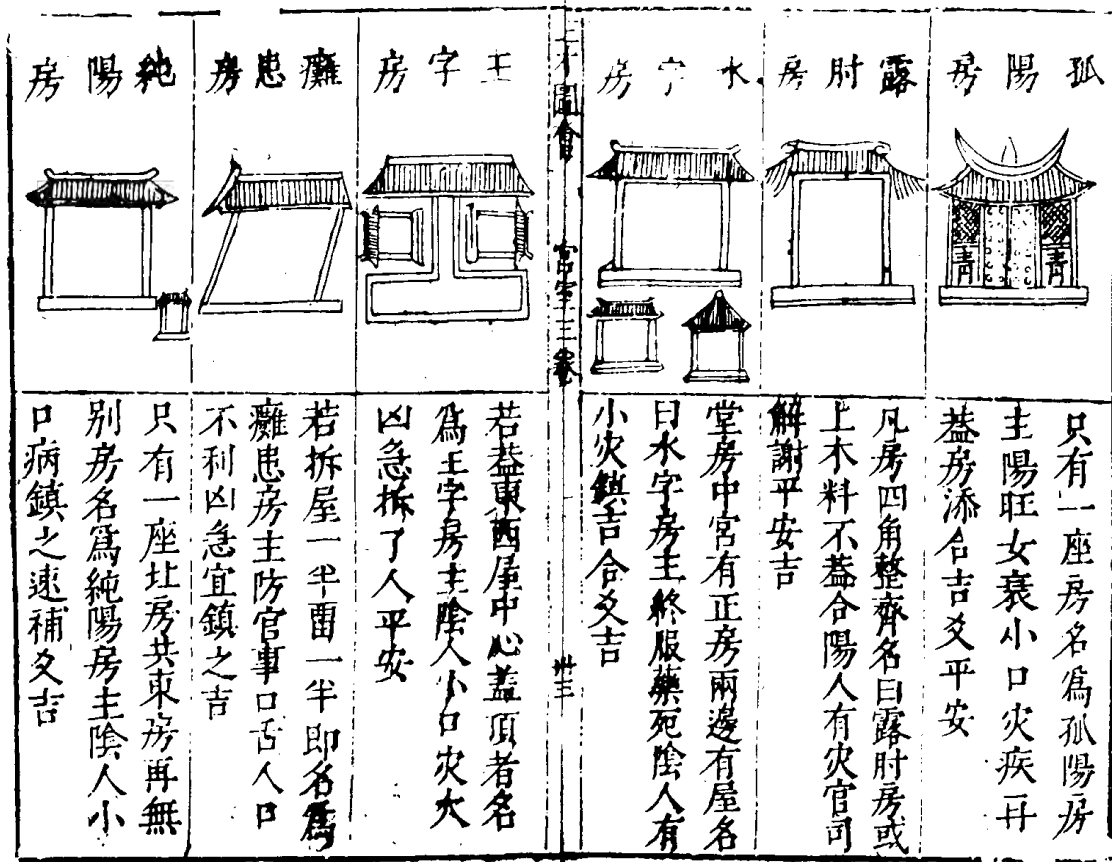 孤陽房
青
青
只有一座房名爲孤陽房
主陽旺女衰小口灾疾再
蓋房添合吉爻平安
露肘房
凡房四角整齊名曰露肘房或
上木料不蓋合陽人有灾官司
解謝平安吉
水字房
堂房中宮有正房兩邊有屋名
曰水字房主終服藥死陰人有
小灾鎮吉合爻吉
三才圖會
宮室三卷
卅三
王字房
若蓋東西屋中心蓋頂者名
爲王字房主陰人小口灾大
凶急拆了人平安
癱患房
若拆屋一半畱一半即名爲
癱患房主防官事口舌人口
不利凶急宜鎮之吉
純陽房
只有一座北房共東房再無
别房名爲純陽房主陰人小
口病鎮之速補爻吉